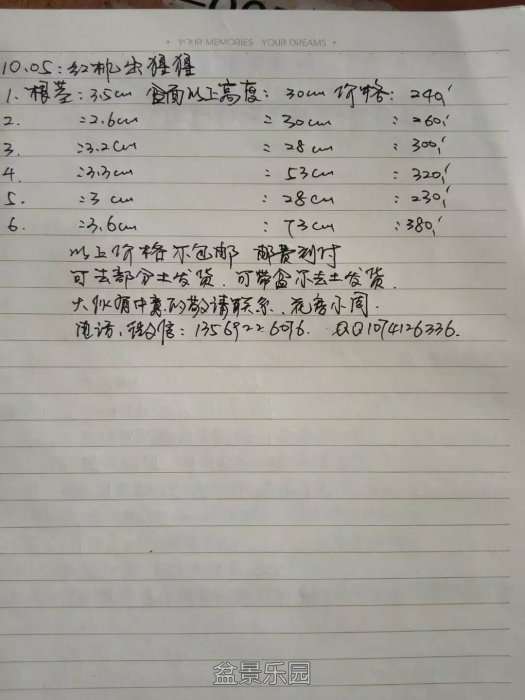 • YOUR MEMORIES YOUR DREAMS •
10.05:红机出猩猩
1. 根茎:3.5cm 盆面以上高度: 30cm 价格: 240,
2. :2.6cm : 30cm : 260,
3. :3.2cm : 28cm : 300,
4. :3.3cm : 53cm : 320,
5. :3cm : 28cm : 230,
6. :3.6cm : 73cm : 380,
以上价格不包邮 邮费到付
可去部分土发货,可带盆不去土发货.
大伙有中意的敬请联系,花房小周.
电话,微信: 13569226096. QQ1074126336.
盆景乐园